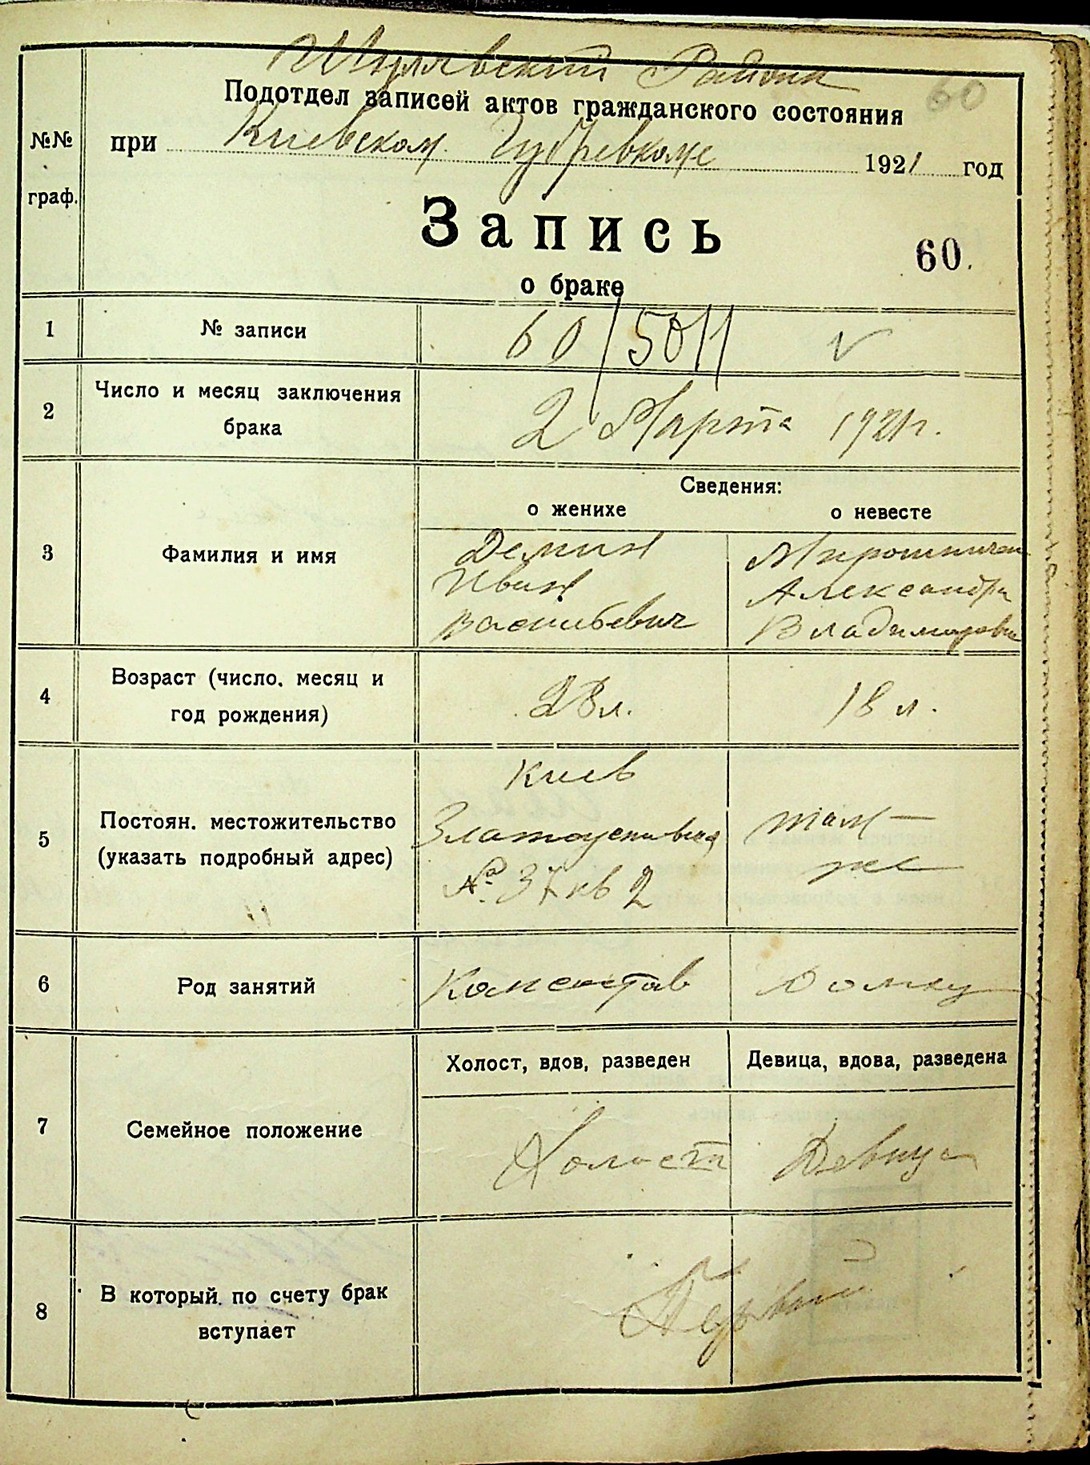 Шулявский Района
60
Подотдел записей актов гражданского состояния
№№
граф.
при Киевском Губревкоме 1921 год
Запись
60.
о браке
1 № записи 60/5011
2 Число и месяц заключения
брака
2 Марта 1921 г.
Сведения:
о женихе о невесте
3 Фамилия и имя
Демин
Иван
Васильевич
Мирошничен
Александра
Владимировн
4 Возраст (число, месяц и
год рождения)
28 л. 18 л.
5 Постоян. местожительство
(указать подробный адрес)
Киев
Златоустовская
№ 37 кв 2
там-
же
6 Род занятий
7 Семейное положение
Холост, вдов, разведен Девица, вдова, разведена
Холост Девица
8 В который по счету брак
вступает
Первый